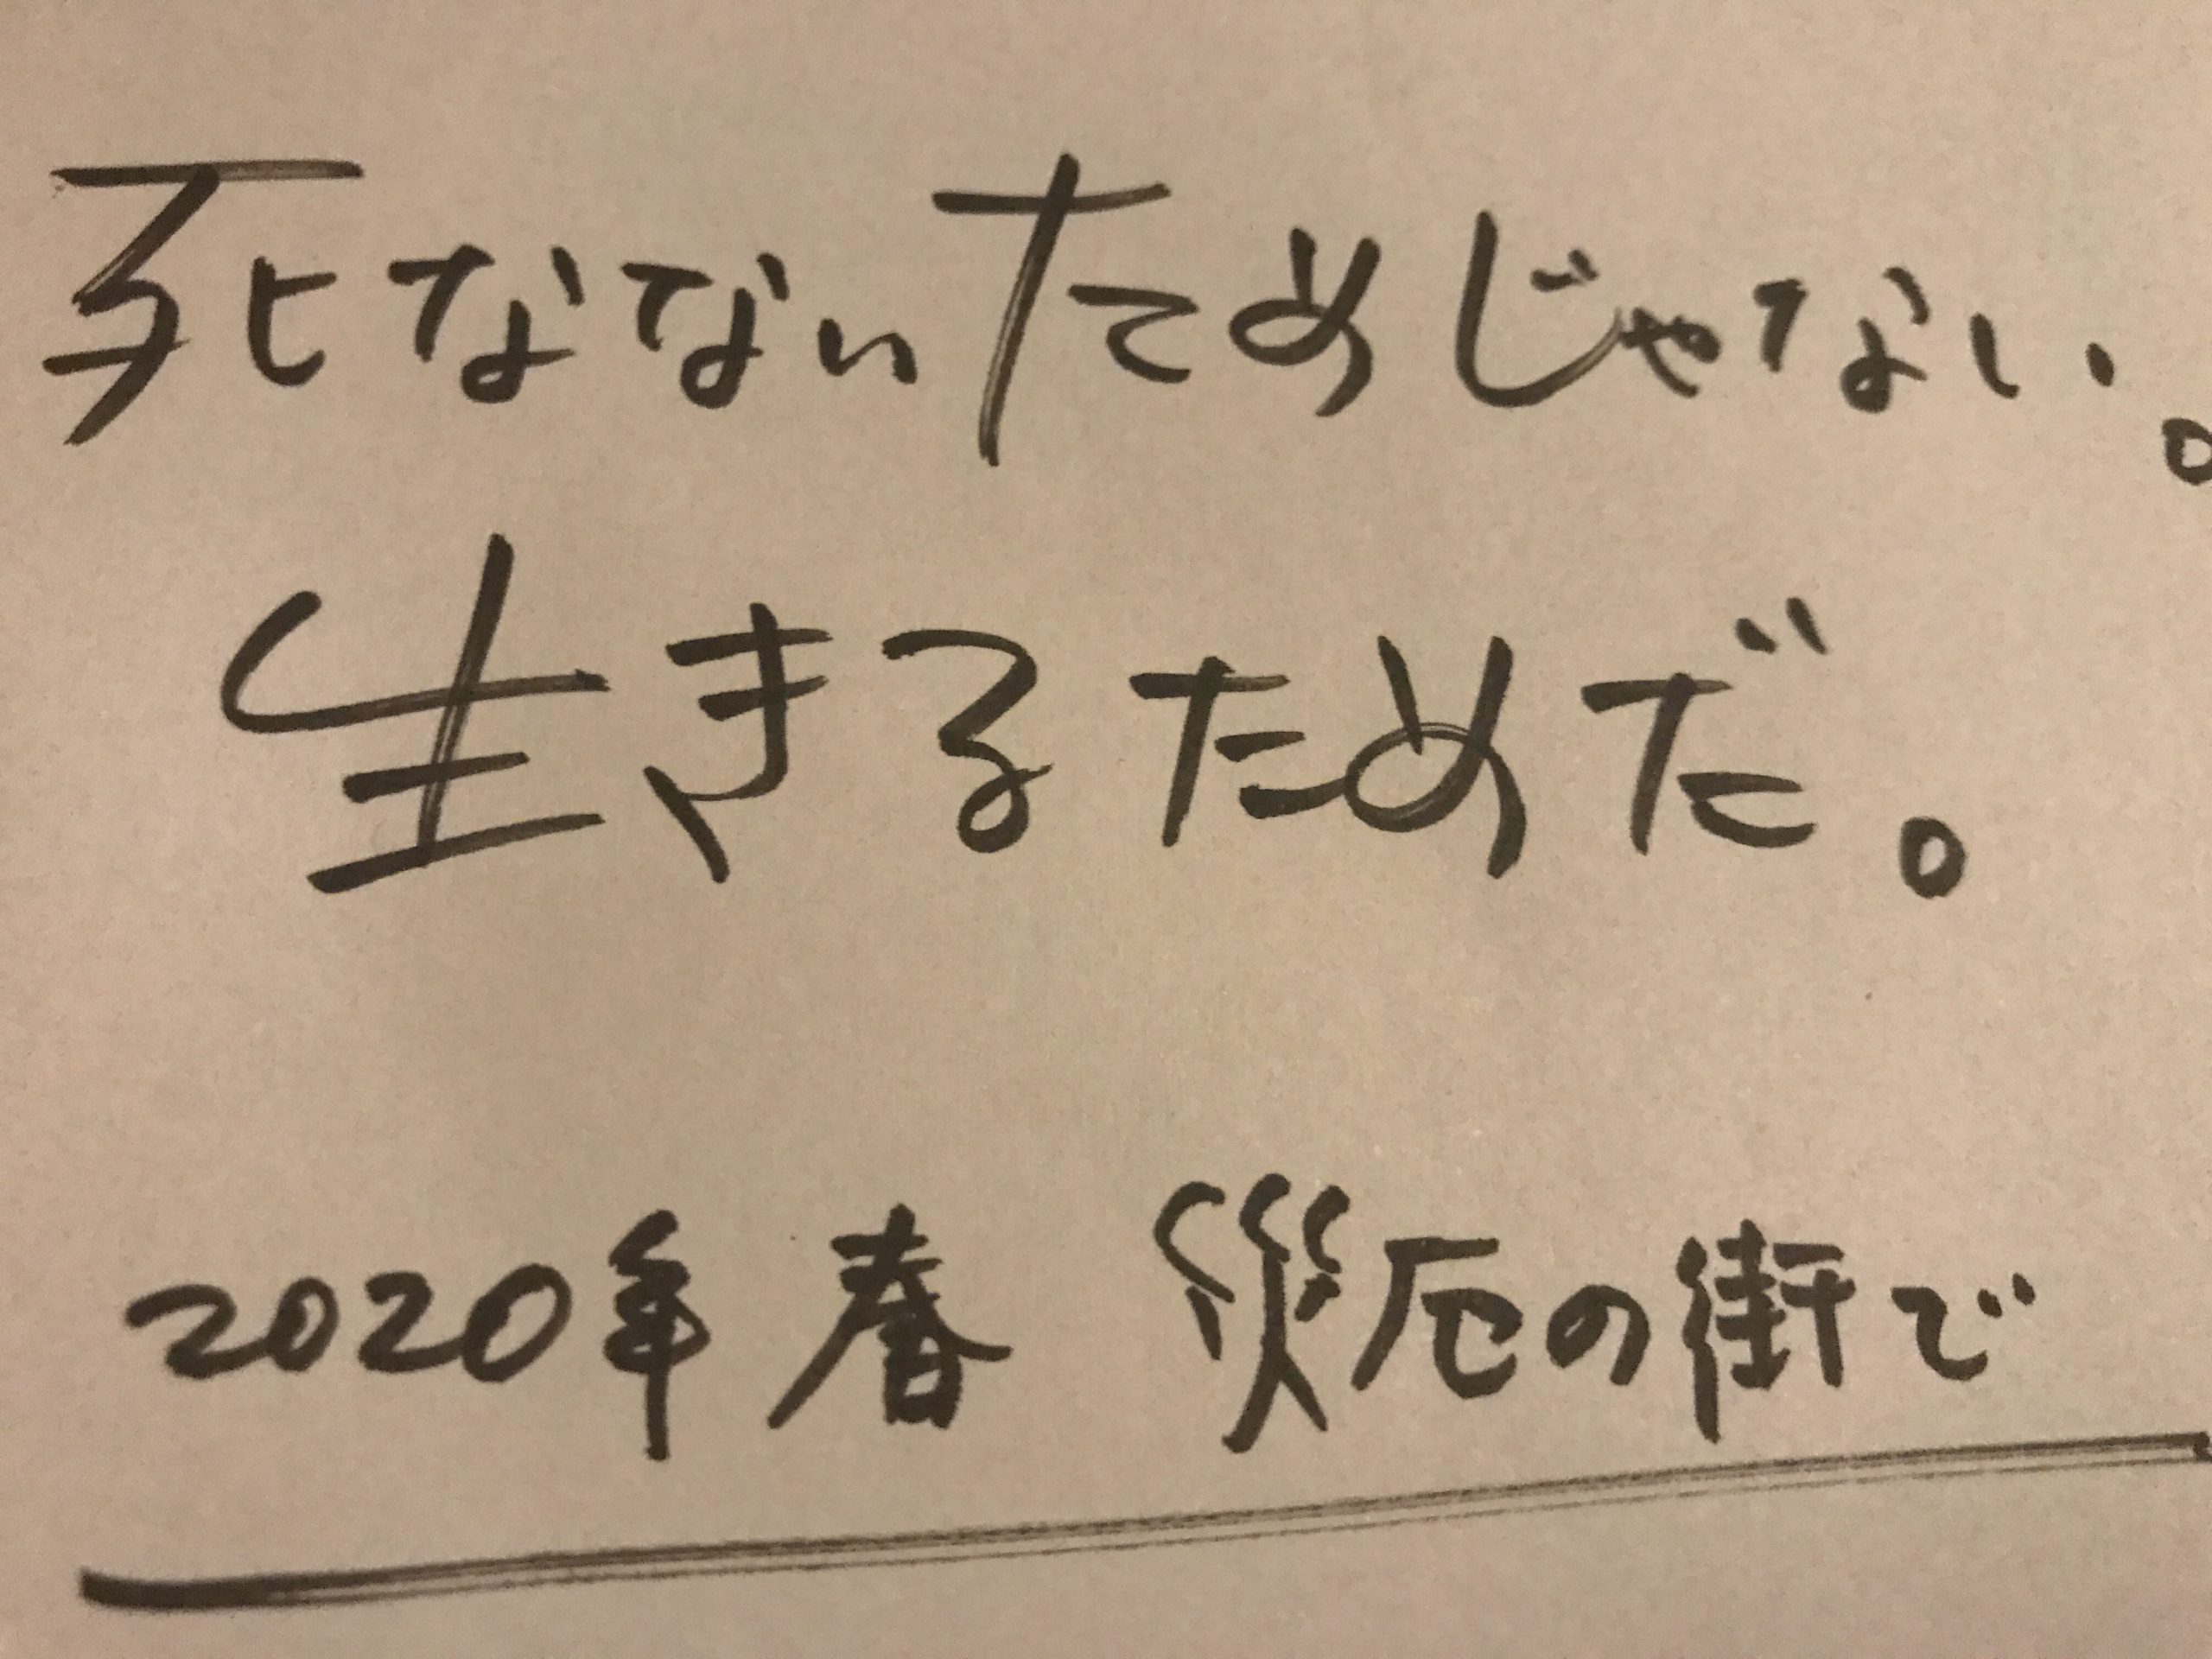 死なないためじゃない。
生きるためだ。
2020年 春　災厄の街で